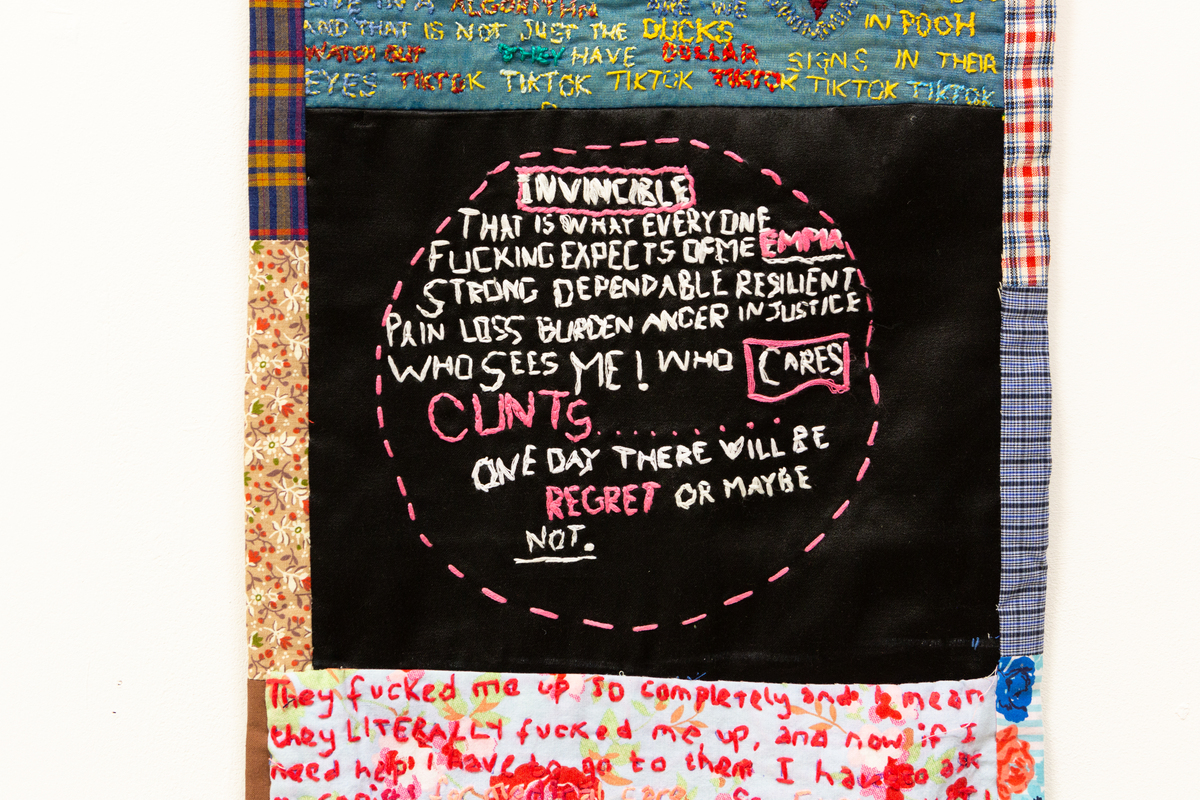 LIVE IN A ALGORITHM ARE WE
AND THAT IS NOT JUST THE DUCKS IN POOH
WATCH OUT THEY HAVE DOLLAR SIGNS IN THEIR
EYES TIKTOK TIKTOK TIKTOK TIKTOK TIKTOK TIKTOK
INVINCIBLE
THAT IS WHAT EVERYONE
FUCKING EXPECTS OF ME EMMA
STRONG DEPENDABLE RESILIENT
PAIN LOSS BURDEN ANGER INJUSTICE
WHO SEES ME! WHO CARES
CUNTS..........
ONE DAY THERE WILL BE
REGRET OR MAYBE
NOT.
They fucked me up so completely and I mean
they LITERALLY fucked me up, and now if I
need help I have to go to them I have to ask